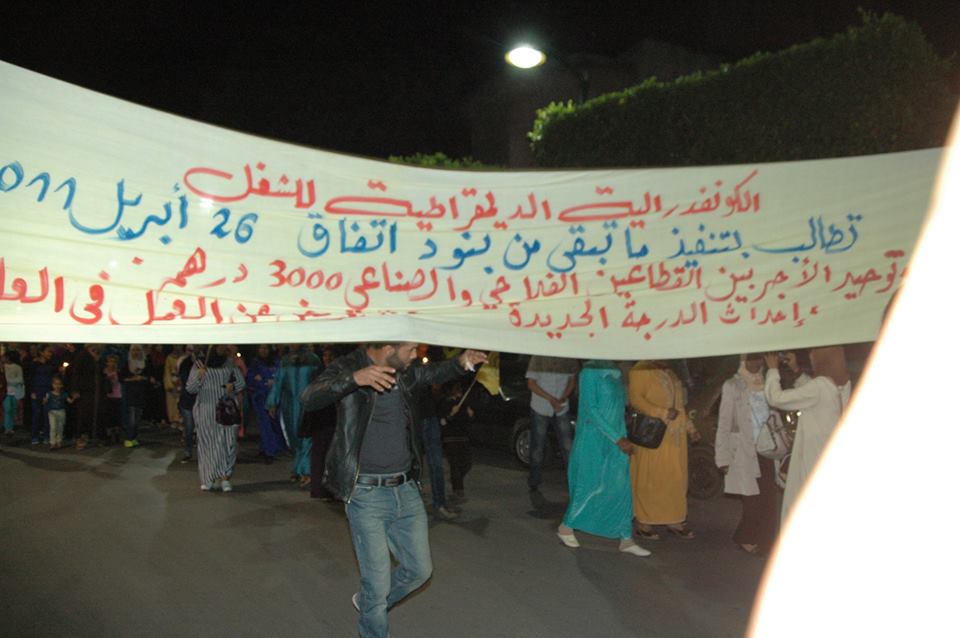 الكونفدرالية الديمقراطية للشغل
تطالب بتنفيذ ما تبقى من بنود اتفاق 26 أبريل 011
توحيد الأجر بين القطاعين الفلاحي والصناعي 3000 درهم
إحداث الدرجة الجديدة عن العمل في